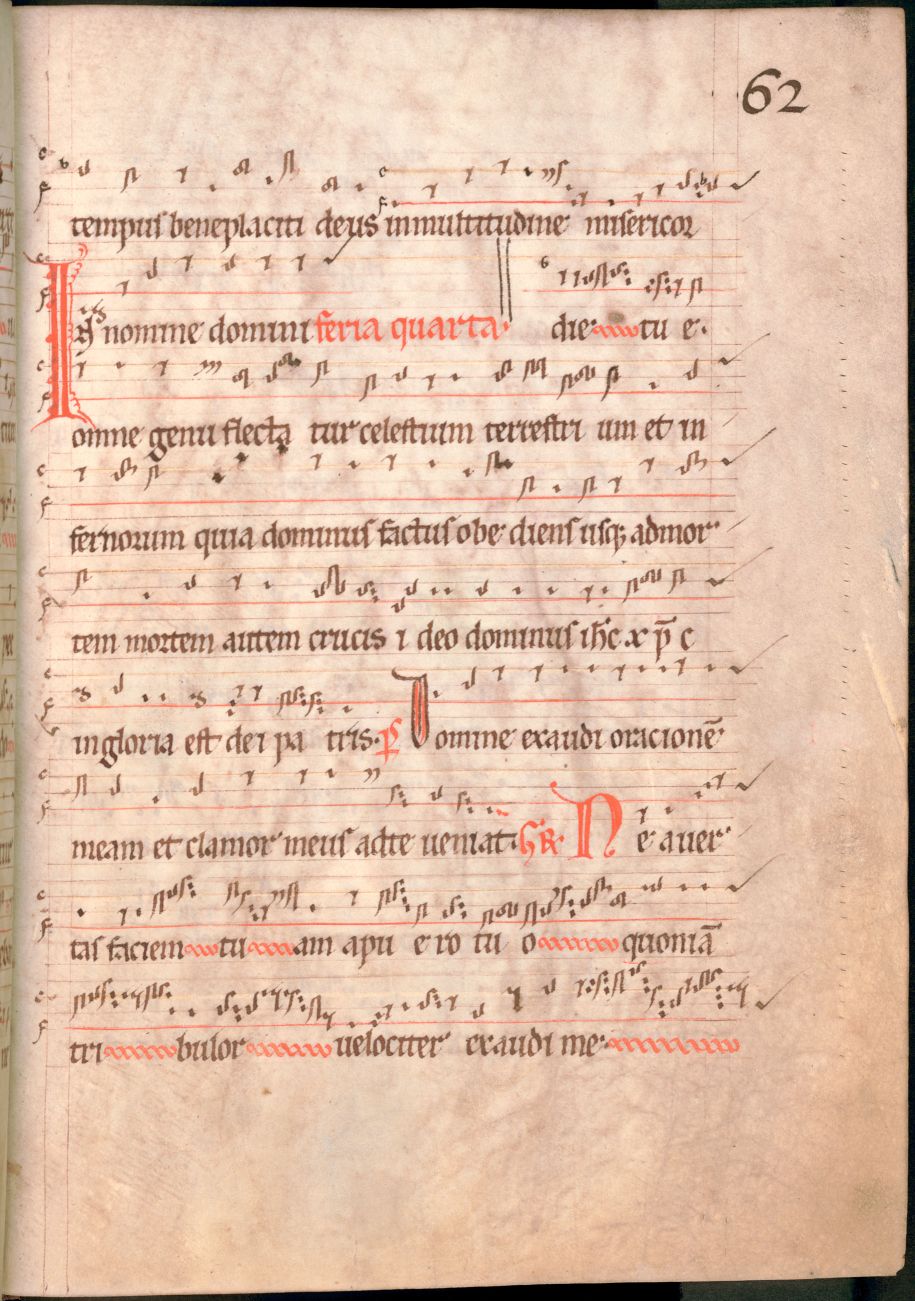 62
tempus beneplaciti deus inmultitudine misericor
In nomine domini feria quarta die tu e.
omne genu flecta tur celestium terrestri um et in
fernorum quia dominus factus obe diens usq; admor
tem mortem autem crucis i deo dominus ih̄c x p̄ c
ingloria est dei pa tris. P̄ Domine exaudi oracionē
meam et clamor meus adte ueniat. Gr̄ Ne auer
tas faciem tu am apu ero tu o quoniā
tri bulor uelociter exaudi me.